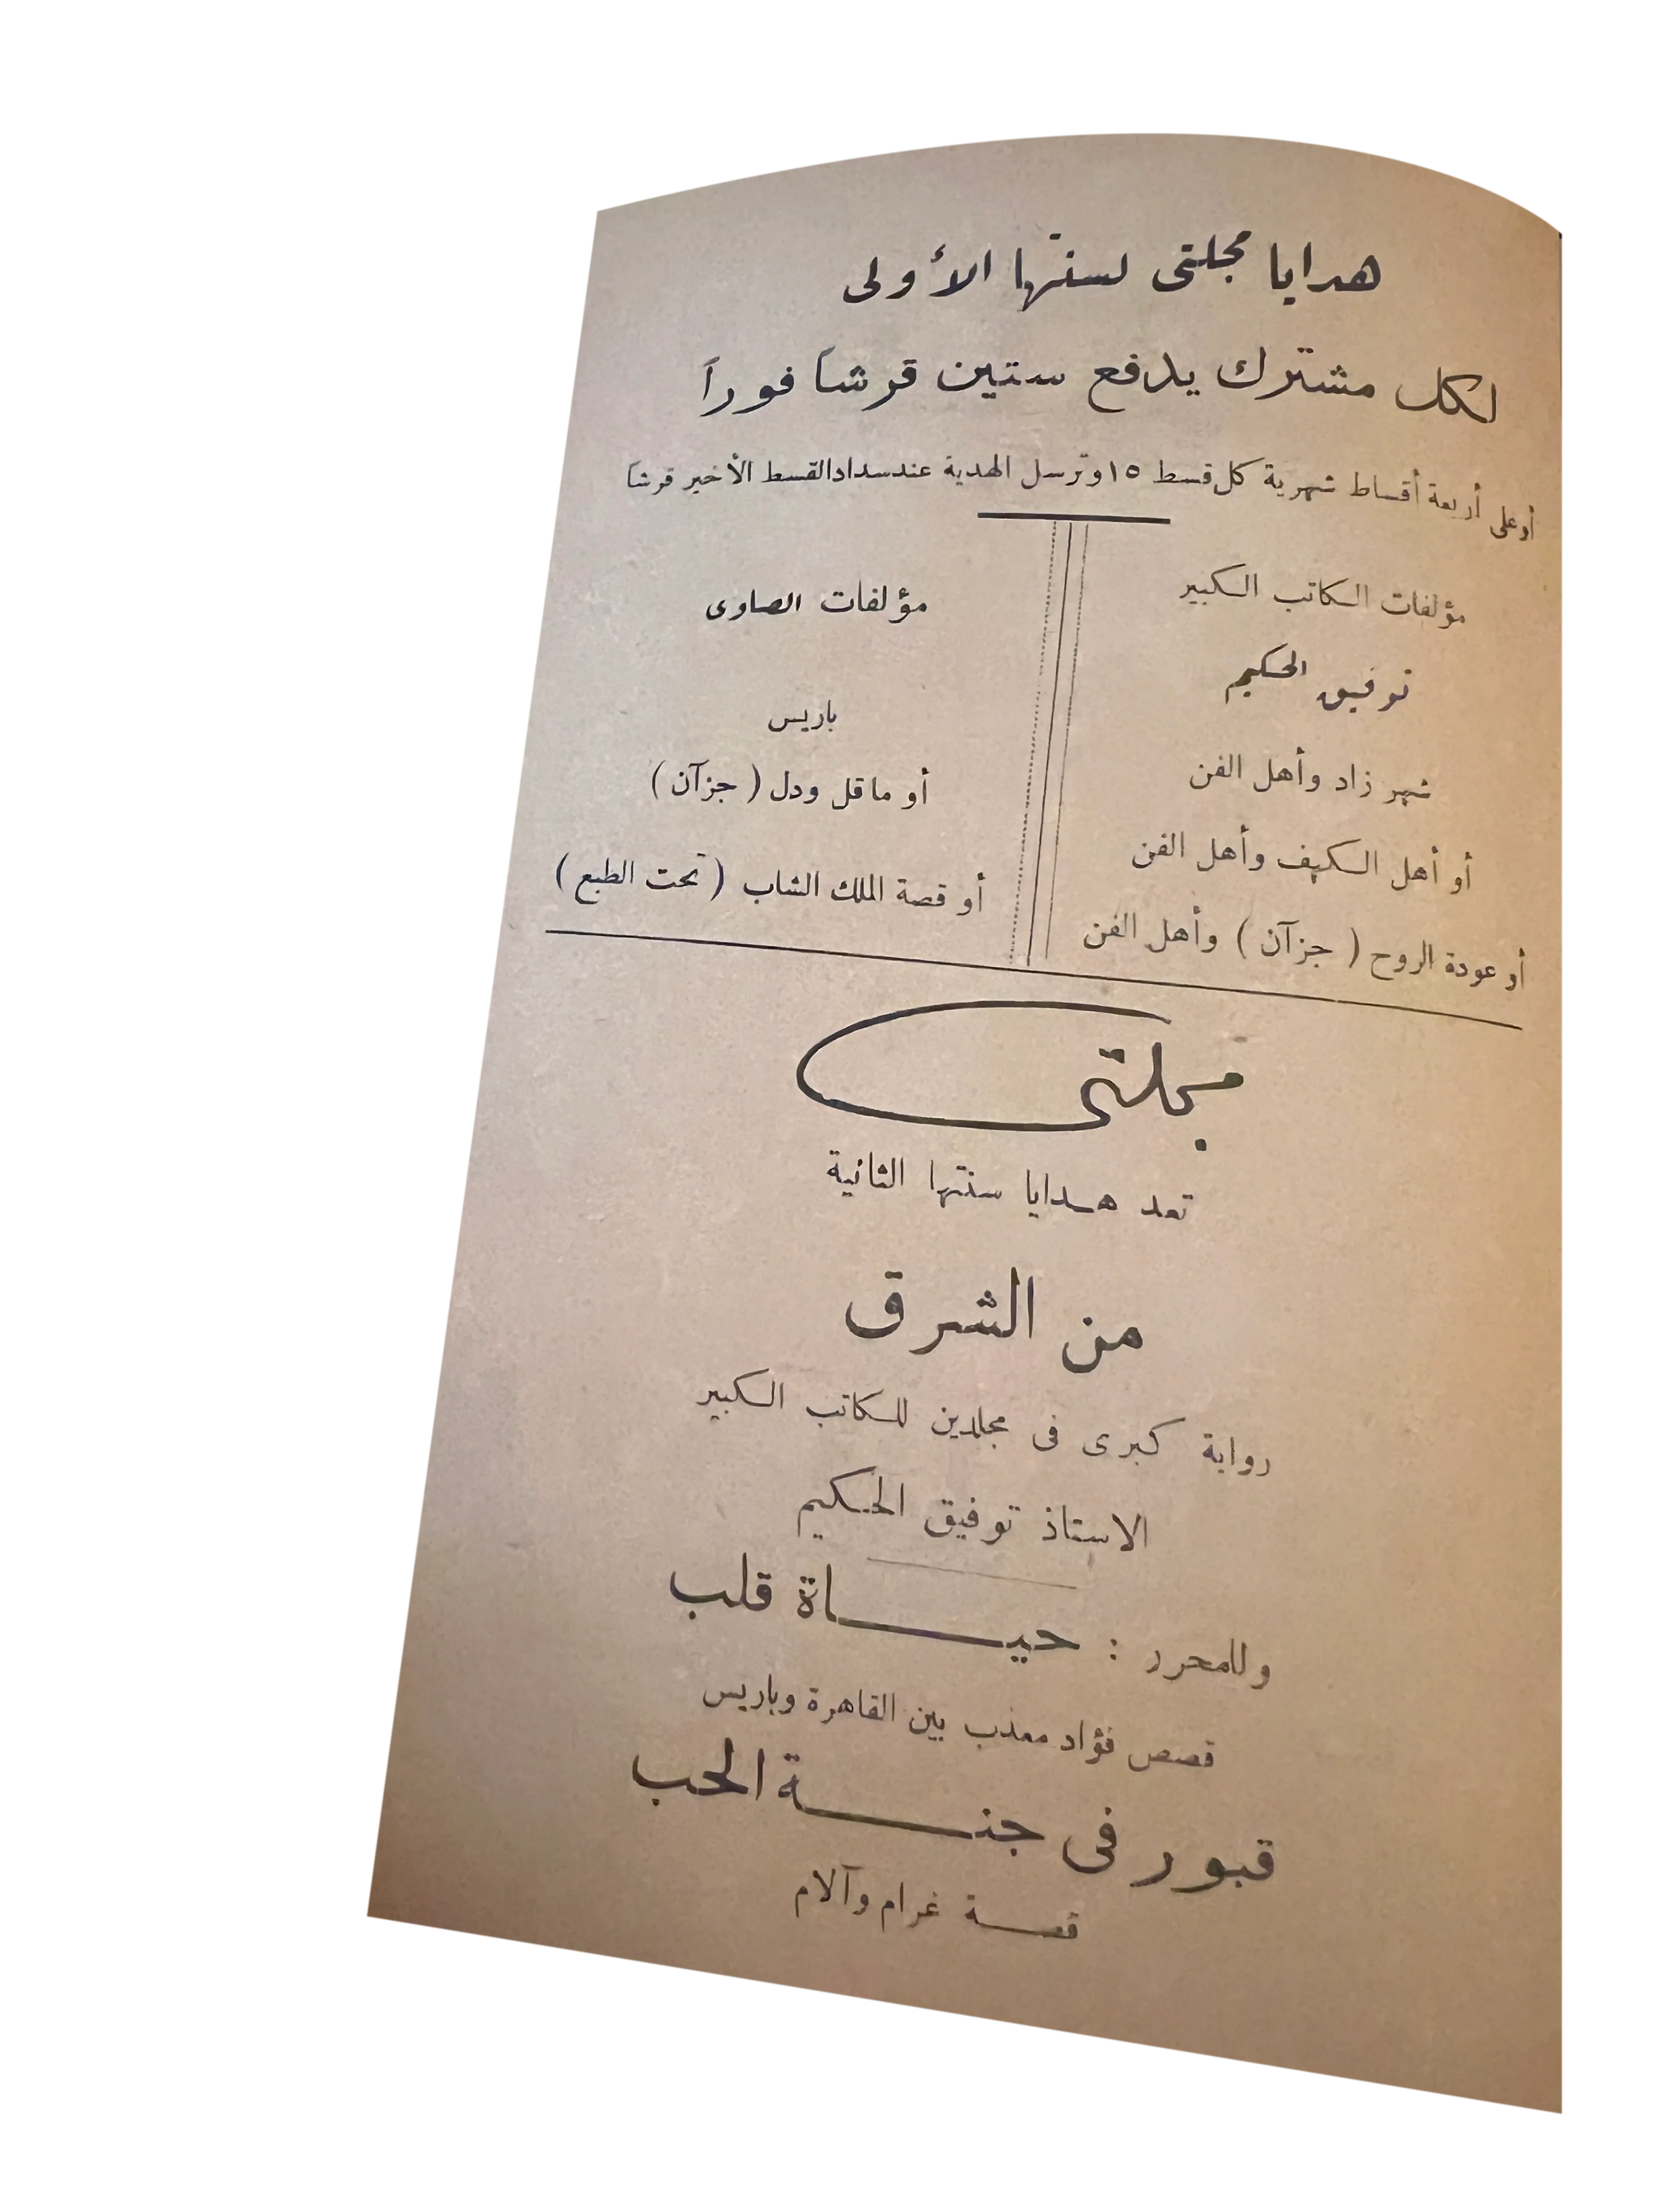 هدايا مجلتى لسنتها الأولى
لكل مشترك يدفع ستين قرشاً فوراً
أو على أربعة أقساط شهرية كل قسط ١٥ وترسل الهدية عند سداد القسط الأخير قرشاً
مؤلفات الكاتب الكبير
توفيق الحكيم
شهر زاد وأهل الفن
أو أهل الكهف وأهل الفن
أو عودة الروح ( جزآن ) وأهل الفن
مؤلفات الصاوى
باريس
أو ما قل ودل ( جزآن )
أو قصة الملك الشاب ( تحت الطبع )
مجلتى
تعد هدايا سنتها الثانية
من الشرق
رواية كبرى فى مجلدين للكاتب الكبير
الاستاذ توفيق الحكيم
وللمحرر : حيـــاة قلب
قصص فؤاد معذب بين القاهرة وباريس
قبور فى جنـــة الحب
قصـــة غرام وآلام